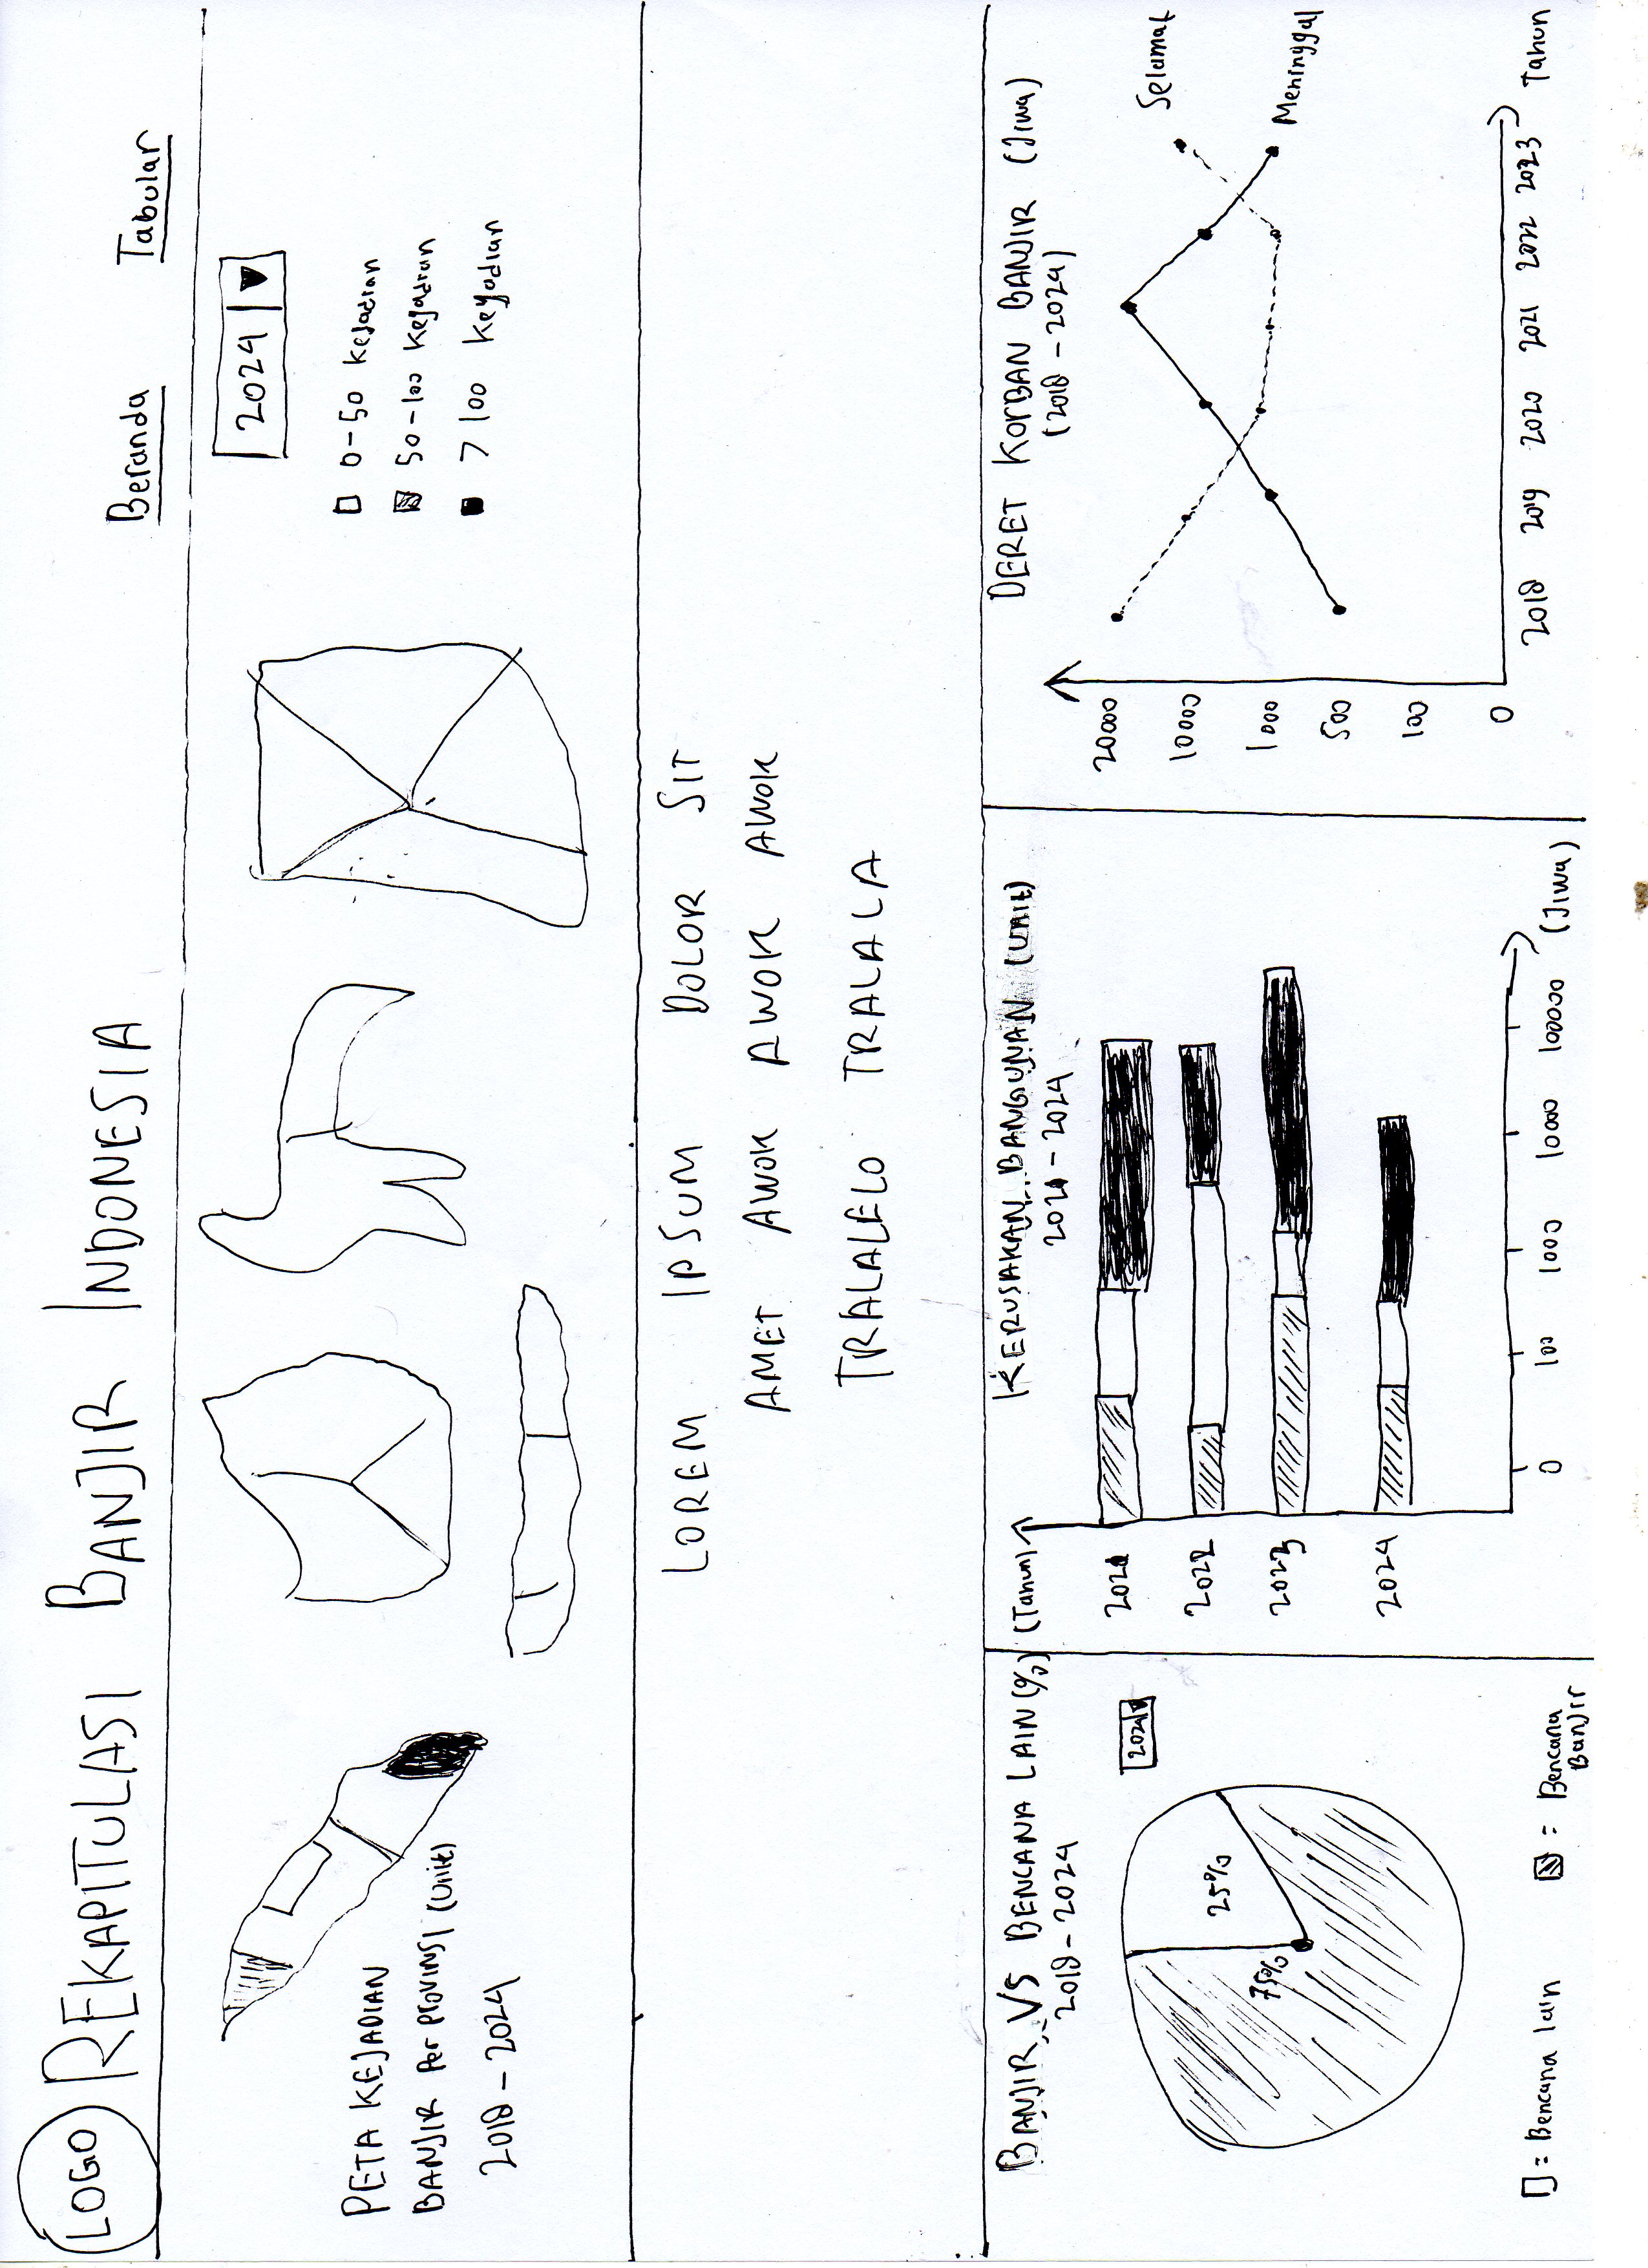 LOGO
REKAPITULASI BANJIR INDONESIA
Beranda
Tabular
2024
PETA KEJADIAN
BANJIR Per PROVINSI (Unit)
2018 - 2024
0-50 Kejadian
50-100 Kejadian
> 100 Kejadian
LOREM IPSUM DOLOR SIT
AMET AWOK AWOK AWOK
TRALALELO TRALALA
BANJIR VS BENCANA LAIN (%)
2018 - 2024
2024
25%
75%
= Bencana lain
= Bencana
Banjir
KERUSAKAN BANGUNAN (Unit)
2021 - 2024
(Tahun)
2021
2022
2023
2024
0 100 1000 10000 100000 (Jiwa)
DERET KorBAN BANJIR (Jiwa)
(2018 - 2024)
20000
10000
1000
500
100
0
Selamat
Meninggal
2018 2019 2020 2021 2022 2023 Tahun